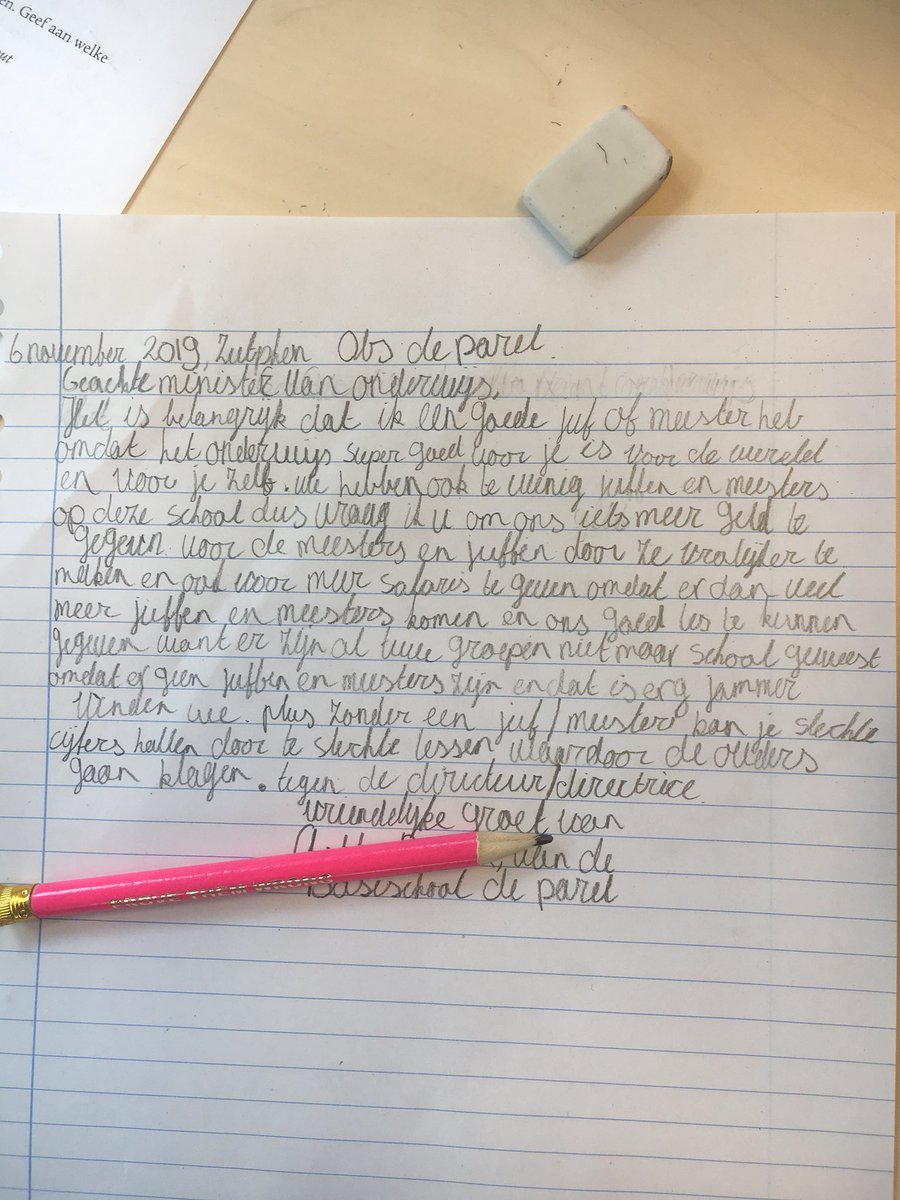 en. Geef aan welke
out
6 november 2019, Zutphen Obs de parel.
Geachte minister van onderwijs,
Het is belangrijk dat ik een goede juf of meester heb
omdat het onderwijs super goed voor je is voor de wereld
en voor je zelf. we hebben ook te weinig juffen en meesters
op deze school dus vraag ik u om ons iets meer geld te
gegeven. voor de meesters en juffen door ze vralijker te
maken en ook voor meer salaris te geven omdat er dan veel
meer juffen en meesters komen en ons goed les te kunnen
gegeven want er zijn al twee groepen niet maar school geweest
omdat er geen juffen en meesters zijn en dat is erg jammer
vinden we. plus zonder een juf/meester kan je slechte
cijfers hallen door te slechte lessen waardoor de ouders
gaan klagen. tegen de directeur/directrice.
vrundelijke groet van
van de
Basisschool de parel
PROVE THEM WRONG